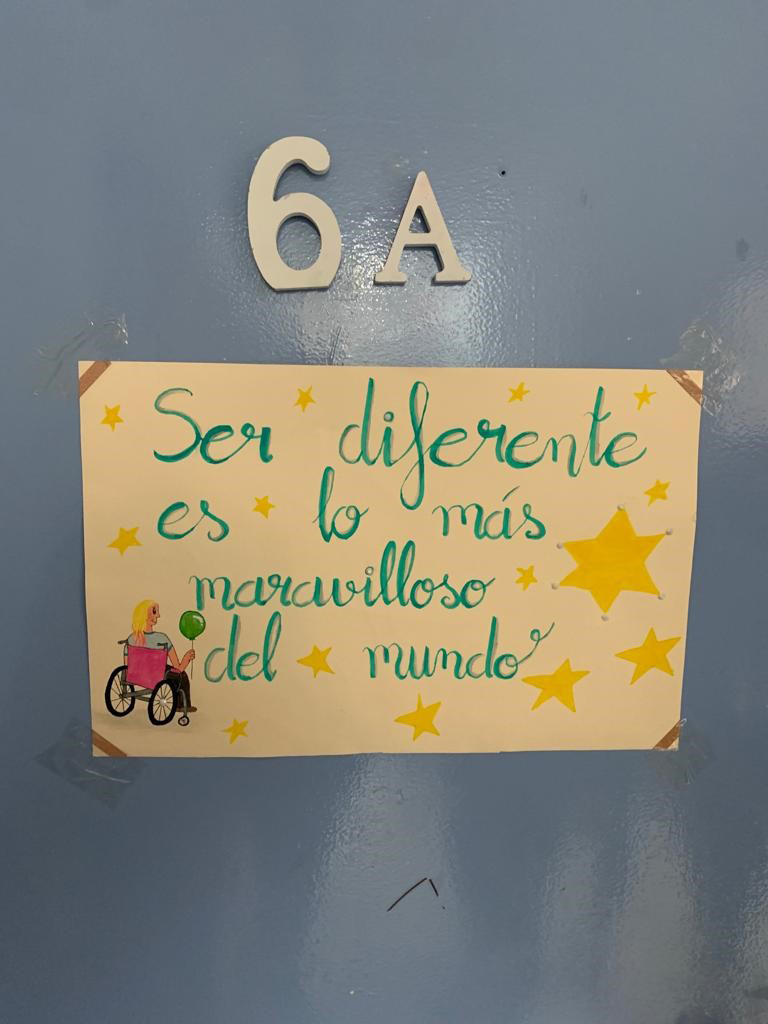 6 A
Ser diferente
es lo más
maravilloso
del mundo